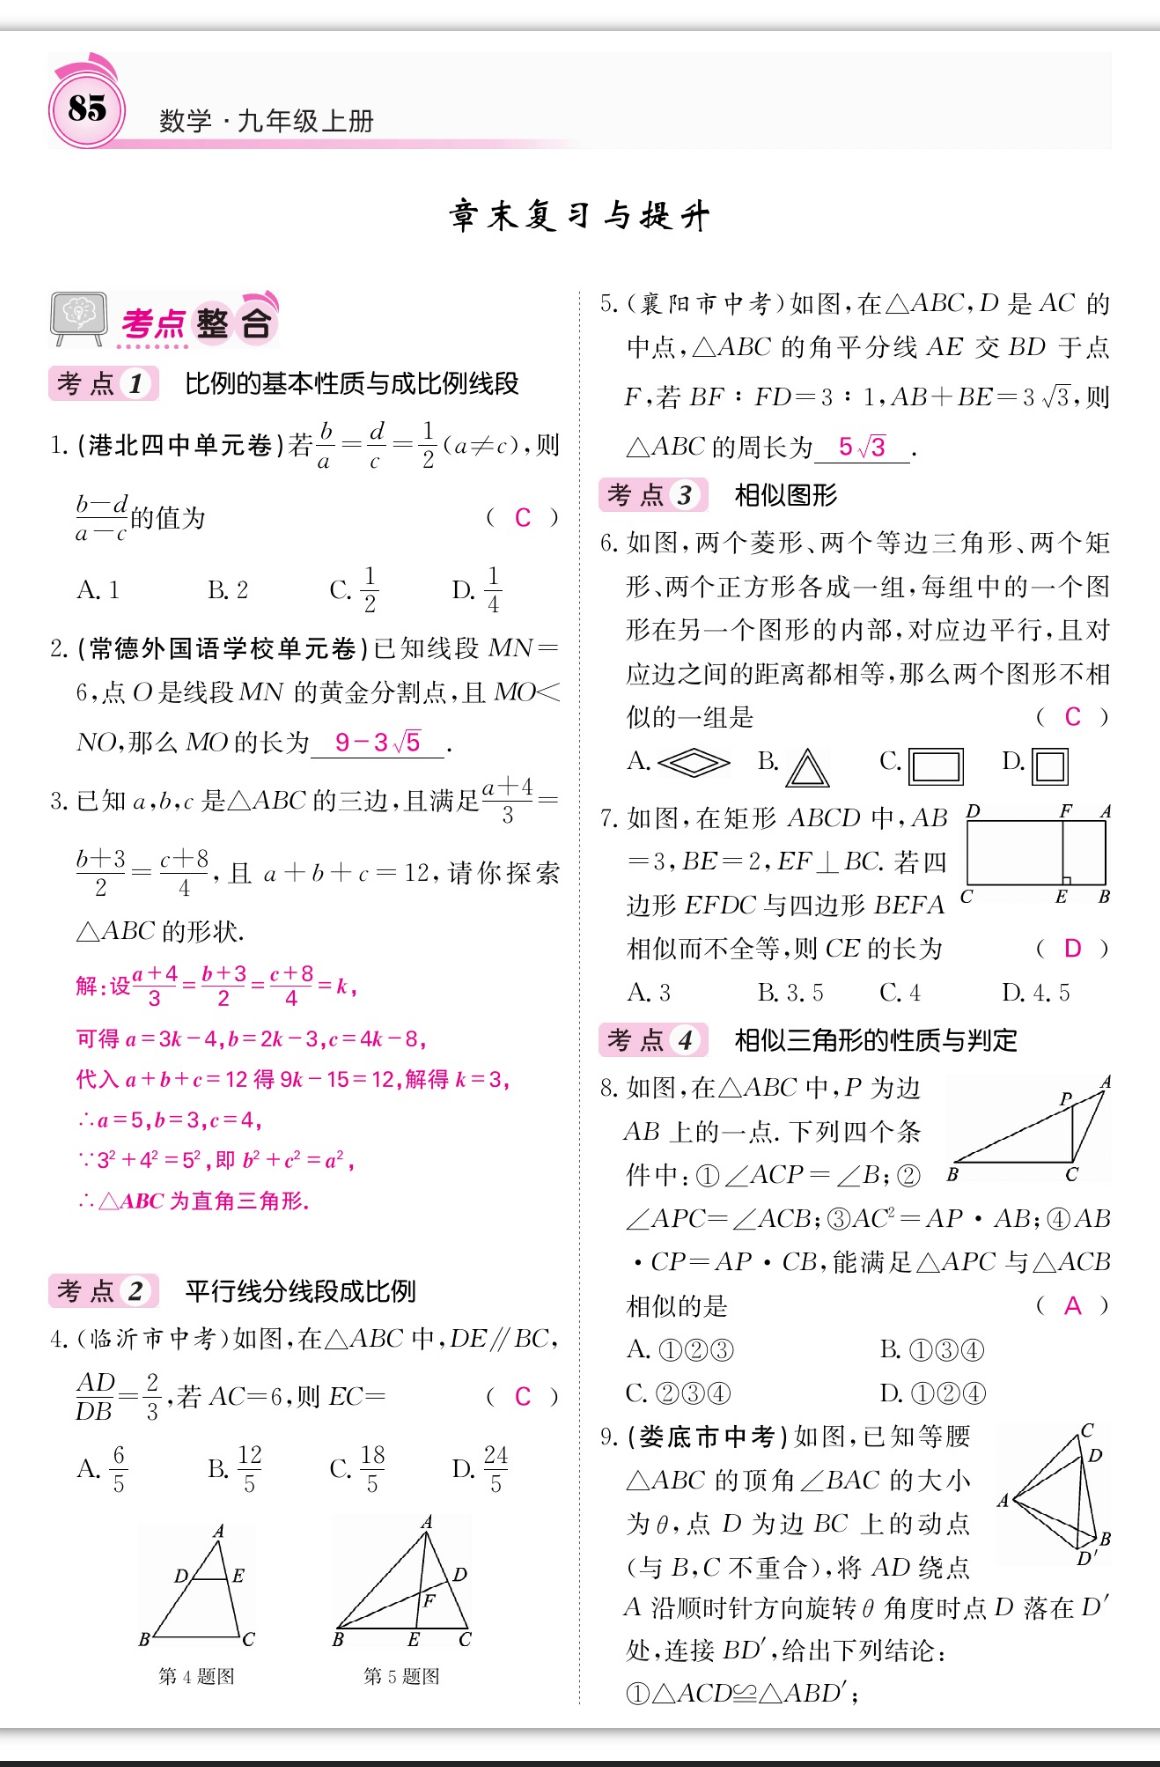 85
数学·九年级上册
章末复习与提升
考点整合
考点1 比例的基本性质与成比例线段
1. (港北四中单元卷)若b/a=d/c=1/2(a≠c),则
(b-d)/(a-c)的值为 ( C )
A. 1 B. 2 C. 1/2 D. 1/4
2. (常德外国语学校单元卷)已知线段 MN=
6,点 O 是线段 MN 的黄金分割点,且 MO<
NO,那么 MO 的长为 9-3√5 .
3. 已知 a,b,c 是△ABC 的三边,且满足(a+4)/3=
(b+3)/2=(c+8)/4,且 a+b+c=12,请你探索
△ABC 的形状.
解:设(a+4)/3=(b+3)/2=(c+8)/4=k,
可得 a=3k-4,b=2k-3,c=4k-8,
代入 a+b+c=12 得 9k-15=12,解得 k=3,
∴a=5,b=3,c=4,
∵3²+4²=5²,即 b²+c²=a²,
∴△ABC 为直角三角形.
考点2 平行线分线段成比例
4. (临沂市中考)如图,在△ABC 中,DE∥BC,
AD/DB=2/3,若 AC=6,则 EC= ( C )
A. 6/5 B. 12/5 C. 18/5 D. 24/5
A
D E
B C
第 4 题图
A
D
F
B E C
第 5 题图
5. (襄阳市中考)如图,在△ABC,D 是 AC 的
中点,△ABC 的角平分线 AE 交 BD 于点
F,若 BF：FD=3：1,AB+BE=3√3,则
△ABC 的周长为 5√3 .
考点3 相似图形
6. 如图,两个菱形、两个等边三角形、两个矩
形、两个正方形各成一组,每组中的一个图
形在另一个图形的内部,对应边平行,且对
应边之间的距离都相等,那么两个图形不相
似的一组是 ( C )
A. B. C. D.
7. 如图,在矩形 ABCD 中,AB
=3,BE=2,EF⊥BC. 若四
边形 EFDC 与四边形 BEFA
相似而不全等,则 CE 的长为 ( D )
D F A
C E B
A. 3 B. 3.5 C. 4 D. 4.5
考点4 相似三角形的性质与判定
8. 如图,在△ABC 中,P 为边
AB 上的一点. 下列四个条
件中:①∠ACP=∠B;②
∠APC=∠ACB;③AC²=AP·AB;④AB
·CP=AP·CB,能满足△APC 与△ACB
相似的是 ( A )
A
P
B C
A. ①②③ B. ①③④
C. ②③④ D. ①②④
9. (娄底市中考)如图,已知等腰
△ABC 的顶角∠BAC 的大小
为 θ,点 D 为边 BC 上的动点
(与 B,C 不重合),将 AD 绕点
A 沿顺时针方向旋转 θ 角度时点 D 落在 D′
处,连接 BD′,给出下列结论:
①△ACD≌△ABD′;
C
D
A
B
D′